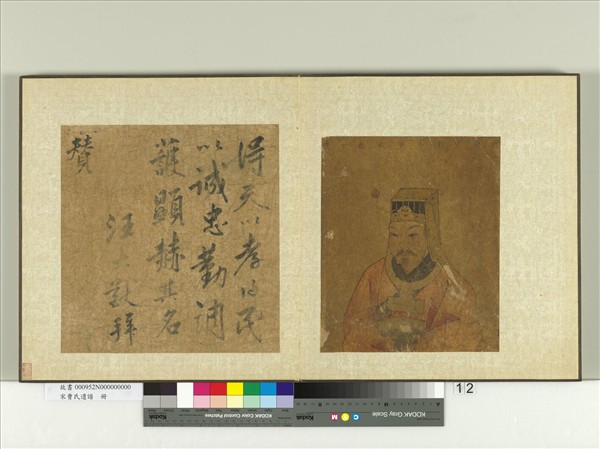 得天以孝得民
以誠忠勤調
護顯赫其名
汪大猷拜
贊
故書 000952N000000000
氏遺譜 冊
KODAK Color Control Patches
KODAK Gray Scale
C Y M
12